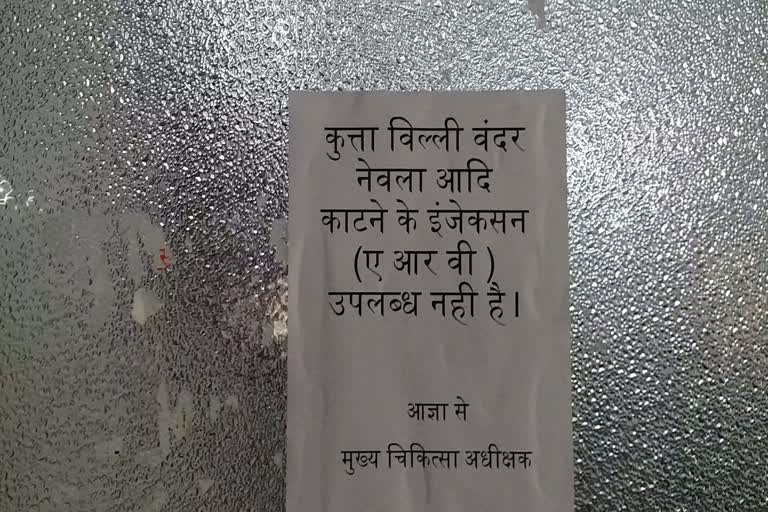 कुत्ता विल्ली वंदर
नेवला आदि
काटने के इंजेकसन
(ए आर वी )
उपलब्ध नही है।
आज्ञा से
मुख्य चिकित्सा अधीक्षक